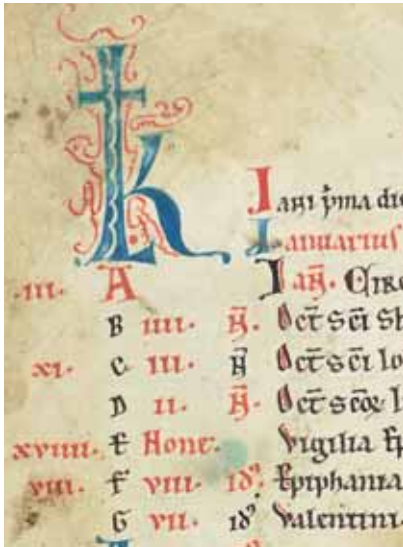 KL
Iani p̄ma die
Ianuarius
.iii. A Ian̄. Circ
B iiii. N̄. Oct̄ Sc̄i Ste
xi. C iii. N̄ Oct̄ Sc̄i Io
D ii. N̄. Oct̄ Sc̄oꝝ I
xviiii. E Non̄. Vigilia Ep
viii. F viii. id᾽ Epiphania
G vii. id᾽ Valentini